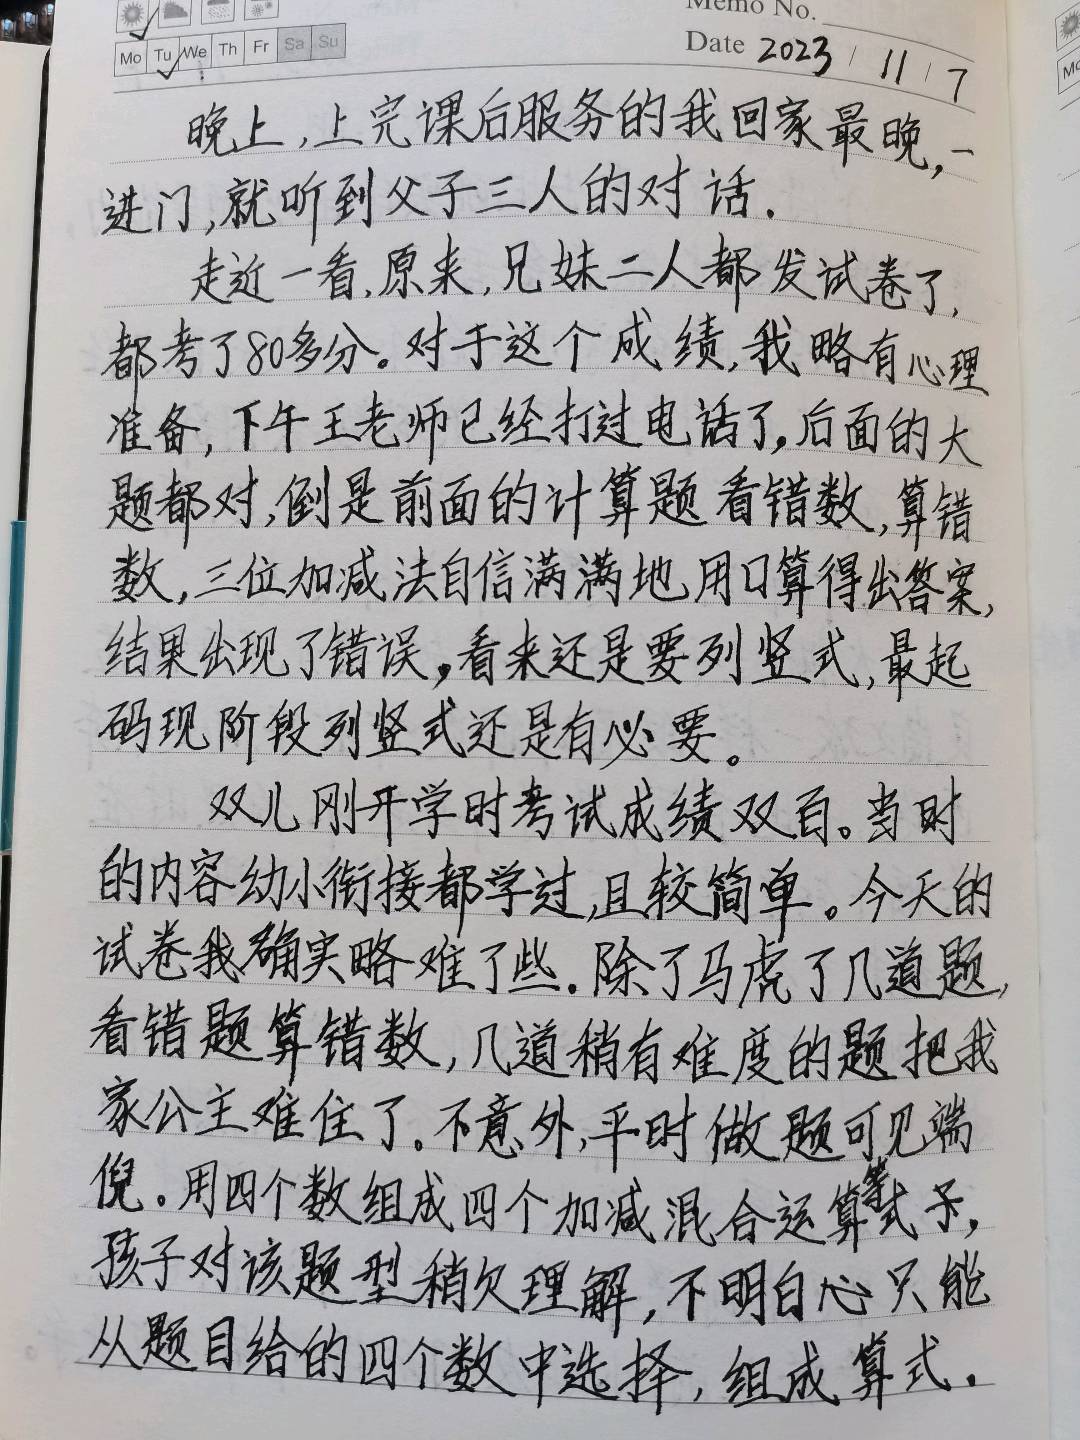 Memo No.
Mo Tu We Th Fr Sa Su
Date 2023 / 11 / 7
晚上,上完课后服务的我回家最晚,一
进门,就听到父子三人的对话.
走近一看,原来,兄妹二人都发试卷了,
都考了80多分。对于这个成绩,我略有心理
准备,下午王老师已经打过电话了,后面的大
题都对,倒是前面的计算题看错数,算错
数,三位加减法自信满满地用口算得出答案,
结果出现了错误,看来还是要列竖式,最起
码现阶段列竖式还是有必要。
双儿刚开学时考试成绩双百。当时
的内容幼小衔接都学过,且较简单。今天的
试卷我确实略难了些.除了马虎了几道题,
看错题算错数,几道稍有难度的题把我
家公主难住了。不意外,平时做题可见端
倪。用四个数组成四个加减混合运算等式子,
孩子对该题型稍欠理解,不明白心只能
从题目给的四个数中选择,组成算式.
Mo